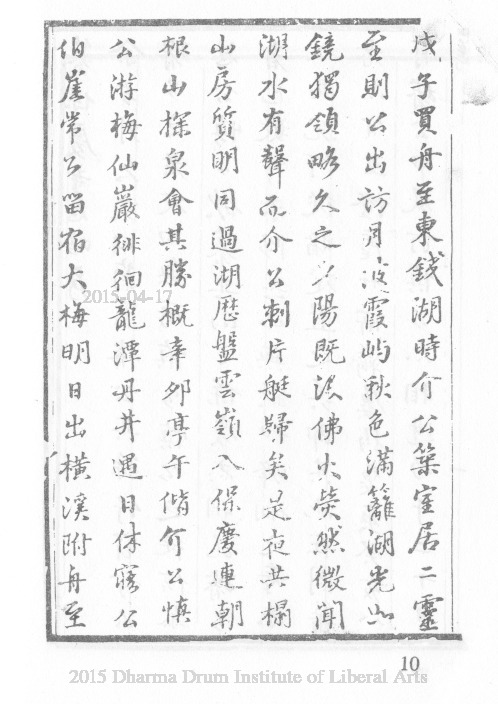 戊子買舟至東錢湖時介公築室居二靈
至則公出訪月波霞嶼秋色滿籬湖光山
鏡獨領略久之夕陽既淡佛火熒然微聞
湖水有聲而介公刺片艇歸矣是夜共榻
山房質明同過湖歷盤雲嶺入保慶連朝
根山探泉會其勝概幸卯亭午偕介公慎
公游梅仙巖徘徊龍潭丹井遇日休寤公
伯崖常公留宿大梅明日出橫溪附舟至
2015-04-17
10
2015 Dharma Drum Institute of Liberal Arts